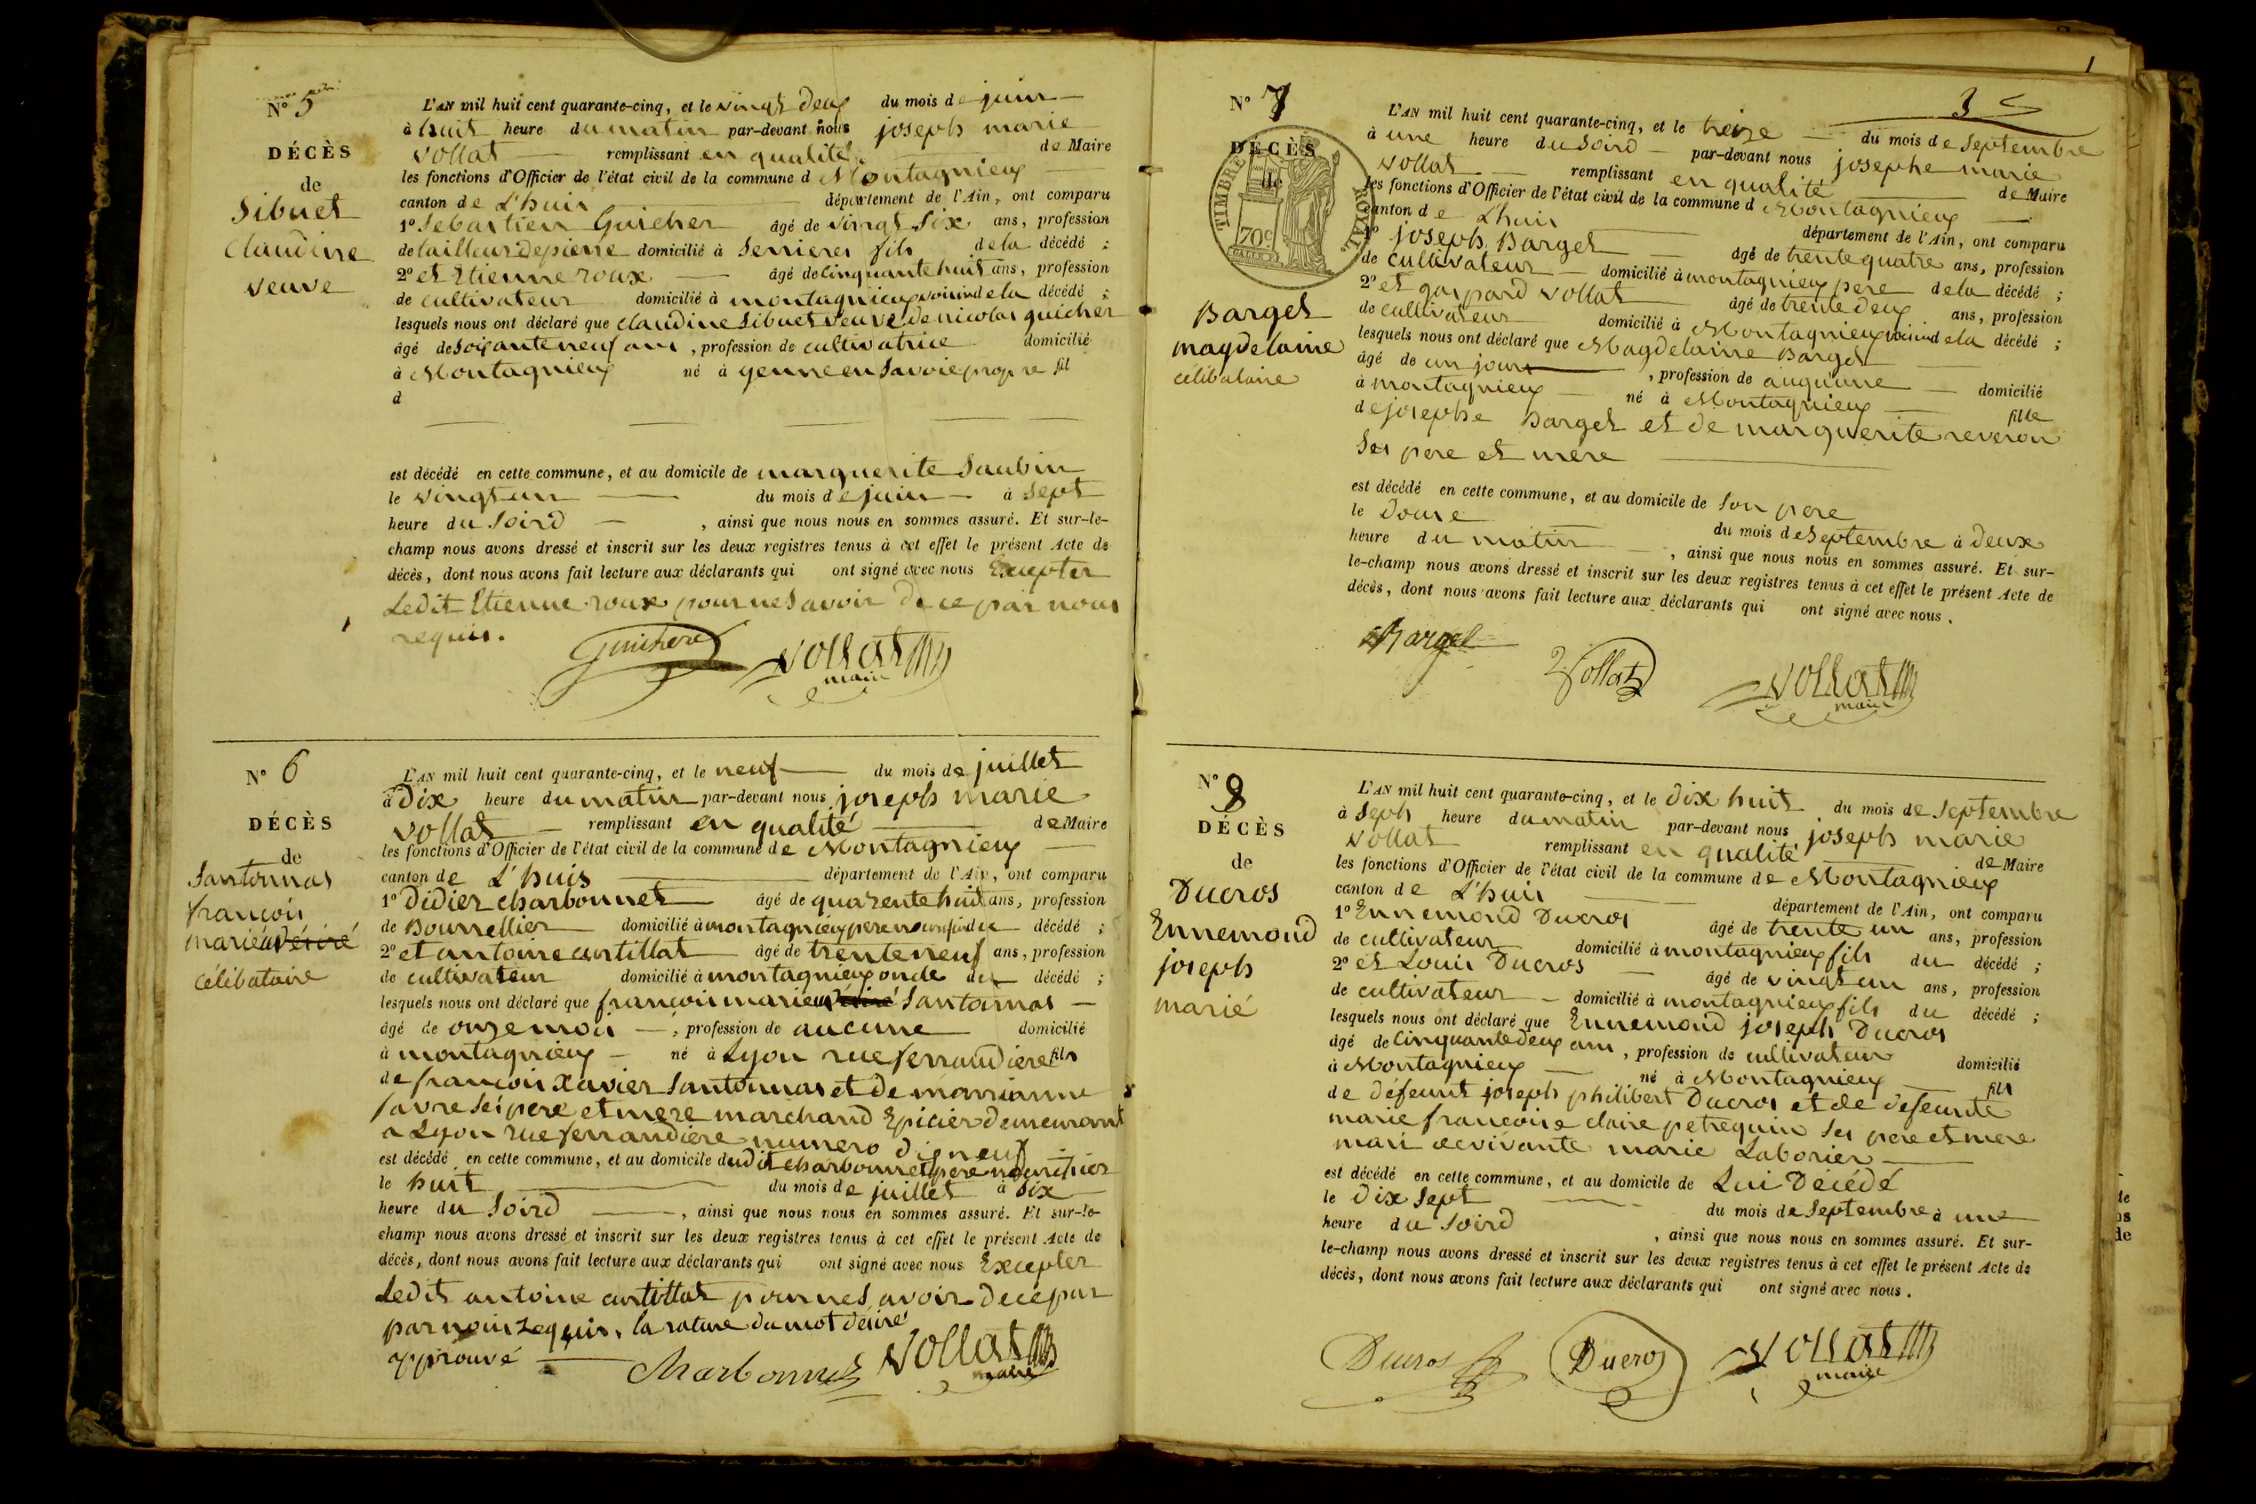 N° 5
DÉCÈS
de
Sibuet
Claudine
veuve
L'AN mil huit cent quarante-cinq, et le vingt deux du mois de juin
à huit heure du matin par-devant nous joseph marie
vollat remplissant en qualité de Maire
les fonctions d'Officier de l'état civil de la commune d Montagnieux
canton de L'huis département de l'Ain, ont comparu
1° Sebastien Guicher âgé de vingt six ans, profession
de tailleur de pierre domicilié à Serrieres fils de la décédé ;
2° et Etienne roux âgé de cinquante huit ans, profession
de cultivateur domicilié à montagnieux voisin de la décédé ;
lesquels nous ont déclaré que claudine Sibuet veuve de nicolas guicher
âgé de soixante neuf ans, profession de cultivatrice domicilié
à Montagnieux né à yenne en Savoie propre fil
d
est décédé en cette commune, et au domicile de marguerite Saubin
le vingt un du mois de juin à Sept
heure du Soird, ainsi que nous nous en sommes assuré. Et sur-le-
champ nous avons dressé et inscrit sur les deux registres tenus à cet effet le présent Acte de
décès, dont nous avons fait lecture aux déclarants qui ont signé avec nous Excepter
Ledit Etienne roux pour ne Savoir de ce par nous
requis.
Vollat
maire
N° 6
DÉCÈS
de
Santonnas
françois
marie désiré
célibataire
L'AN mil huit cent quarante-cinq, et le neuf du mois de juillet
à Dix heure du matin par-devant nous joseph marie
vollat remplissant en qualité de Maire
les fonctions d'Officier de l'état civil de la commune de Montagnieux
canton de L'huis département de l'Ain, ont comparu
1° Didier charbonnet âgé de quarente huit ans, profession
de Bourrellier domicilié à montagnieux pere nourisier du décédé ;
2° et antoine cantillat âgé de trente neuf ans, profession
de cultivateur domicilié à montagnieux oncle du décédé ;
lesquels nous ont déclaré que françois marie désiré Santonnas
âgé de onze mois, profession de aucune domicilié
à montagnieux né à Lyon rue ferrandiere fils
de françois Xavier Santonnas et de marrianne
favre Ses pere et mere marchand Epicier demeurant
a Lyon rue ferrandiere numero dix neuf
est décédé en cette commune, et au domicile dudit charbonnet pere nourisier
le huit du mois de juillet à Dix
heure du Soird, ainsi que nous nous en sommes assuré. Et sur-le-
champ nous avons dressé et inscrit sur les deux registres tenus à cet effet le présent Acte de
décès, dont nous avons fait lecture aux déclarants qui ont signé avec nous Excepter
Ledit antoine cantillat pour ne Savoir de ce par
par nous requis, la rature du mot désiré
approuvé
Charbonnet Vollat
maire
3
N° 7
DÉCÈS
de
TIMBRE ROYAL
70c
Barget
magdelaine
célibataire
L'AN mil huit cent quarante-cinq, et le treize du mois de Septembre
à une heure du Soird par-devant nous josephe marie
vollat remplissant en qualité de Maire
les fonctions d'Officier de l'état civil de la commune d Montagnieux
canton de L'huis département de l'Ain, ont comparu
1° joseph Barget âgé de trente quatre ans, profession
de cultivateur domicilié à montagnieux pere de la décédé ;
2° et gaspard vollat âgé de trente deux ans, profession
de cultivateur domicilié à Montagnieux voisin de la décédé ;
lesquels nous ont déclaré que Magdelaine Barget
âgé de un jour, profession de auqu'une domicilié
à montagnieux né à Montagnieux fille
de josephe Barget et de marguerite reveron
Ses pere et mere
est décédé en cette commune, et au domicile de Son pere
le Douze du mois de Septembre à deux
heure du matin, ainsi que nous nous en sommes assuré. Et sur-
le-champ nous avons dressé et inscrit sur les deux registres tenus à cet effet le présent Acte de
décès, dont nous avons fait lecture aux déclarants qui ont signé avec nous.
Barget Vollat Vollat
maire
N° 8
DÉCÈS
de
Ducros
Ennemond
joseph
marié
L'AN mil huit cent quarante-cinq, et le dix huit du mois de Septembre
à Seph heure du matin par-devant nous joseph marie
vollat remplissant en qualité de Maire
les fonctions d'Officier de l'état civil de la commune de Montagnieux
canton de L'huis département de l'Ain, ont comparu
1° Ennemond Ducros âgé de trente un ans, profession
de cultivateur domicilié à montagnieux fils du décédé ;
2° et Louis Ducros âgé de vingt un ans, profession
de cultivateur domicilié à montagnieux fils du décédé ;
lesquels nous ont déclaré que Ennemond joseph Ducros
âgé de cinquante deux ans, profession de cultivateur domicilié
à Montagnieux né à Montagnieux fils
de défeunt joseph philibert Ducros et de defeunte
marie françoise claire petrequin Ses pere et mere
mari a vivante marie Laborier
est décédé en cette commune, et au domicile de Lui Décédé
le Dix Sept du mois de Septembre à une
heure du Soird, ainsi que nous nous en sommes assuré. Et sur-
le-champ nous avons dressé et inscrit sur les deux registres tenus à cet effet le présent Acte de
décès, dont nous avons fait lecture aux déclarants qui ont signé avec nous.
Ducros Ducros Vollat
maire